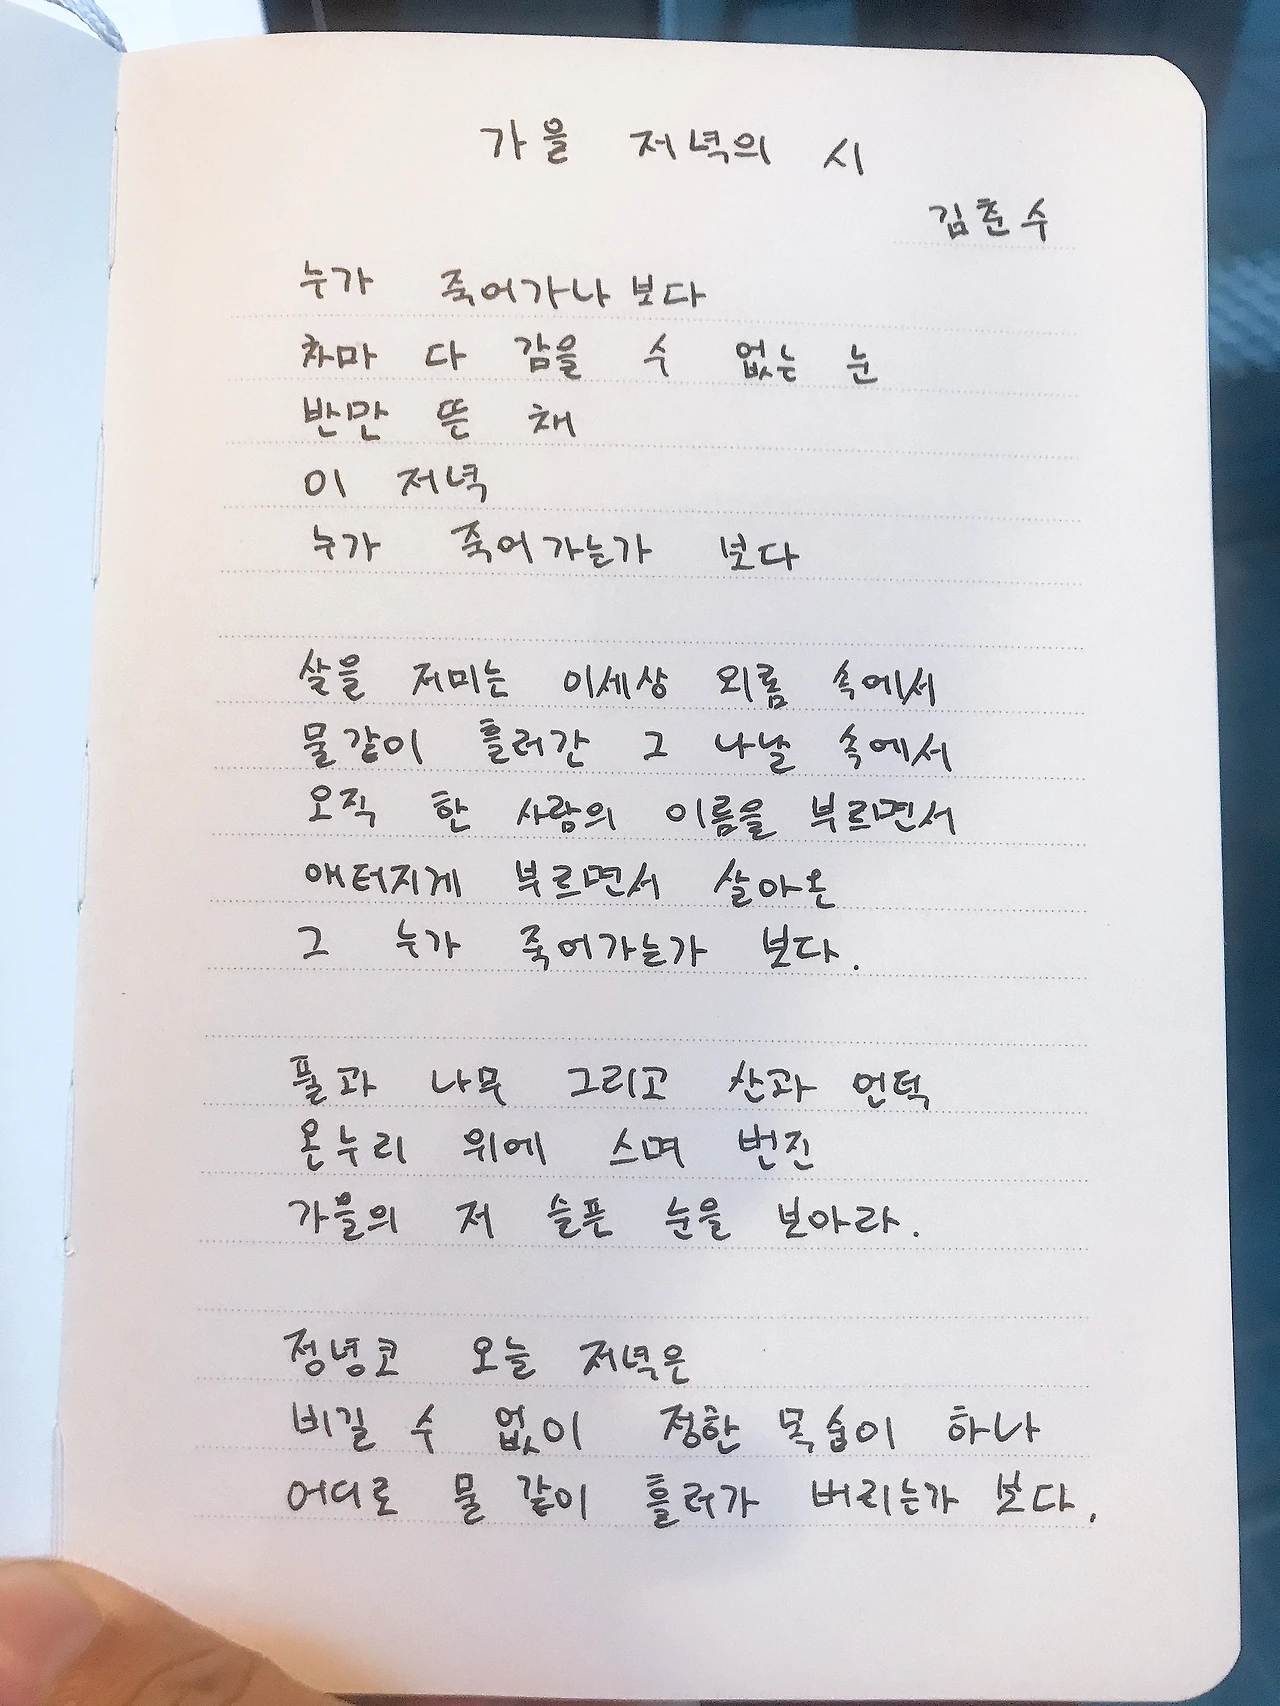 가을 저녁의 시
김춘수
누가 죽어가나 보다
차마 다 감을 수 없는 눈
반만 뜬 채
이 저녁
누가 죽어가는가 보다
살을 저미는 이세상 외롬 속에서
물같이 흘러간 그 나날 속에서
오직 한 사람의 이름을 부르면서
애터지게 부르면서 살아온
그 누가 죽어가는가 보다.
풀과 나무 그리고 산과 언덕
온누리 위에 스며 번진
가을의 저 슬픈 눈을 보아라.
정녕코 오늘 저녁은
비길 수 없이 정한 목숨이 하나
어디로 물 같이 흘러가 버리는가 보다.